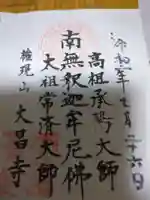 令和六年七月二十六日
高祖承陽大師
南無釈迦牟尼佛
太祖常済大師
大昌寺